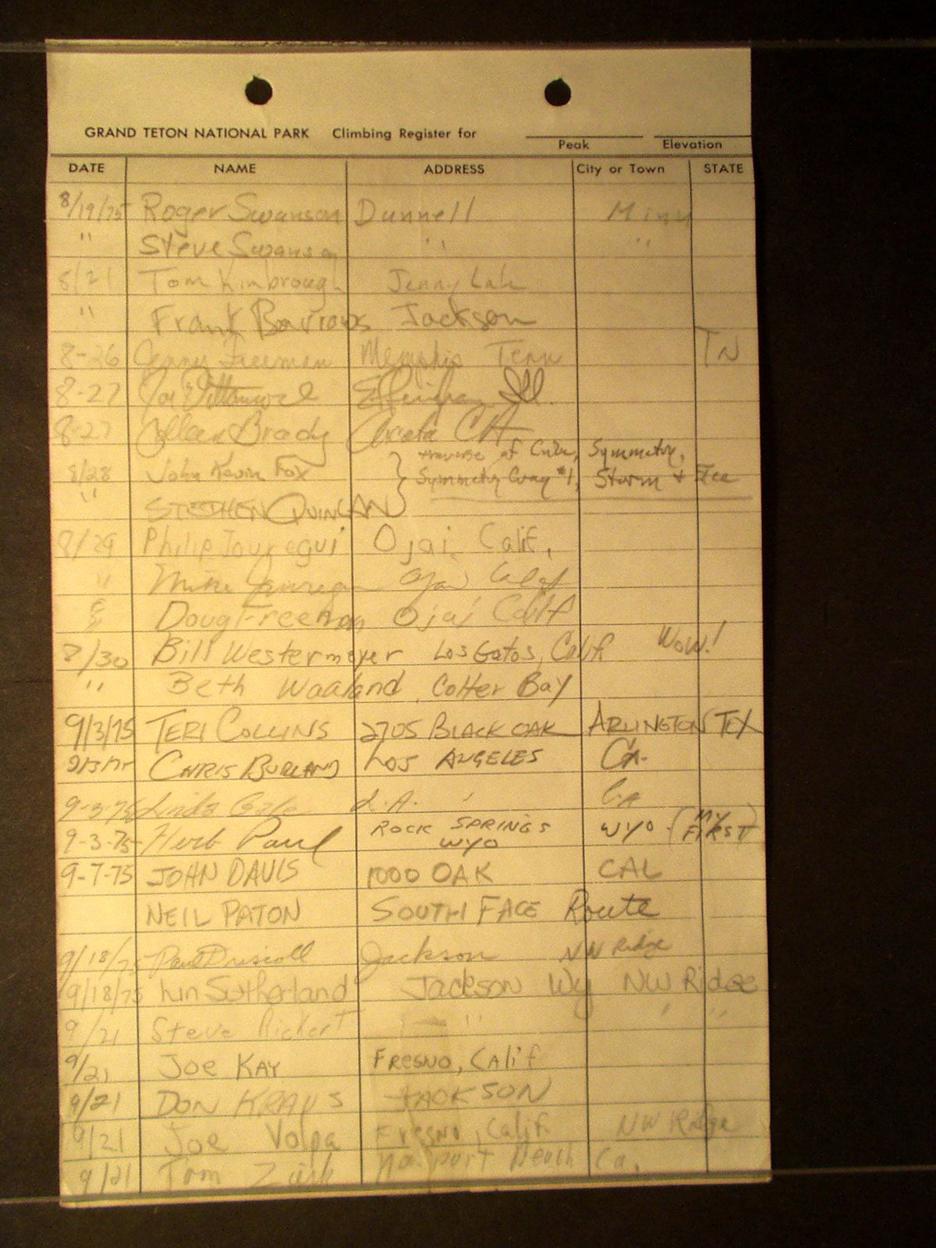 GRAND TETON NATIONAL PARK Climbing Register for
Peak Elevation
DATE NAME ADDRESS City or Town STATE
8/19/75 Roger Swanson Dunnell Minn
" Steve Swanson " "
8/21 Tom Kimbrough Jenny Lake
" Frank Barrows Jackson
8-26 Freeman Memphis Tenn TN
8-27 Joe Ill.
8-27 Colleen Brady Arcata CA
traverse of Cube, Symmetry,
8/28 John Kevin Fox Symmetry Crag #1, Storm + Ice
" STEPHEN QUINLAN
8/29 Philip Jauregui Ojai, Calif,
" Mike Jauregui Ojai Calif
" Doug Freeman Ojai Calif
8/30 Bill Westermeyer Los Gatos, Calif WOW!
" Beth Waaland, Colter Bay
9/3/75 TERI COLLINS 2705 BLACK OAK ARLINGTON TEX
9/3/75 CHRIS BURLAND LOS ANGELES CA.
9-3-75 Linda L.A. CA
9-3-75 Herb Paul ROCK SPRINGS WYO WYO (MY FIRST)
9-7-75 JOHN DAVIS 1000 OAK CAL
NEIL PATON SOUTH FACE Route
9/18/75 Paul Driscoll Jackson NW Ridge
9/18/75 Sutherland Jackson Wy NW Ridge
9/21 Steve Rickert " " "
9/21 JOE KAY FRESNO, CALIF
9/21 DON KRAUS JACKSON
9/21 Joe Volpa Fresno, Calif NW Ridge
9/21 Tom Newport Beach Ca.